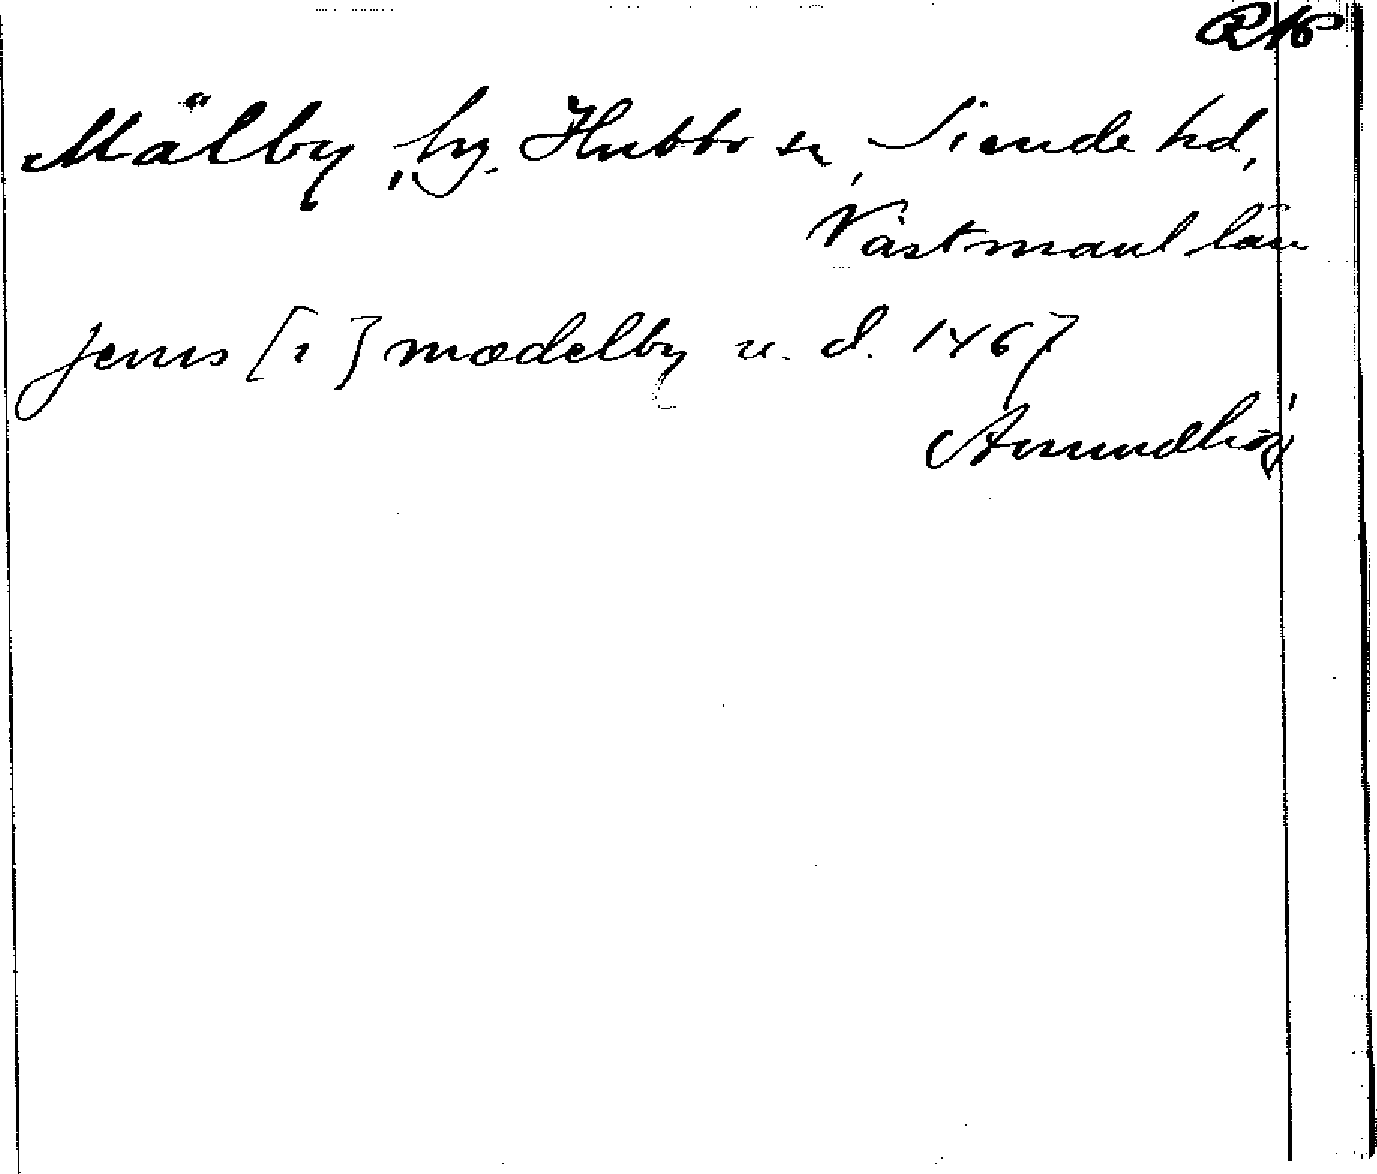 RAP
Mälby, by. Hubbo sn, Siende hd,
Västmanl län
jenis [i] mædelby u. d. 1467
Amundhög